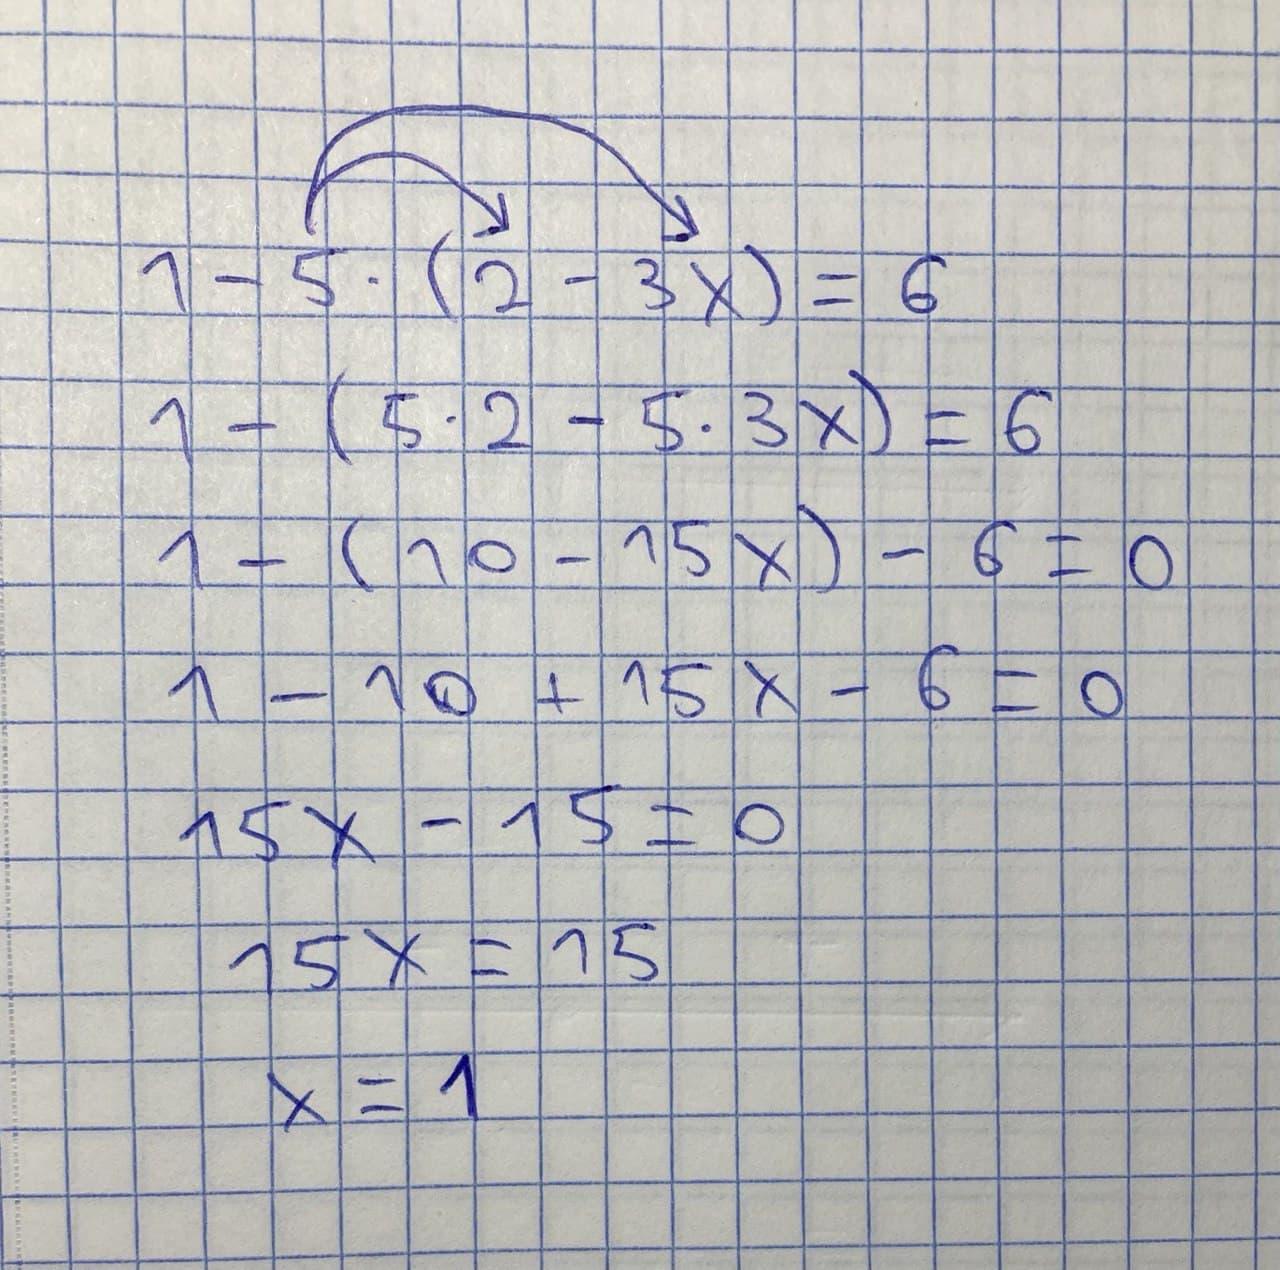 1 - 5 · (2 - 3x) = 6
1 - (5 · 2 - 5 · 3x) = 6
1 - (10 - 15x) - 6 = 0
1 - 10 + 15x - 6 = 0
15x - 15 = 0
15x = 15
x = 1